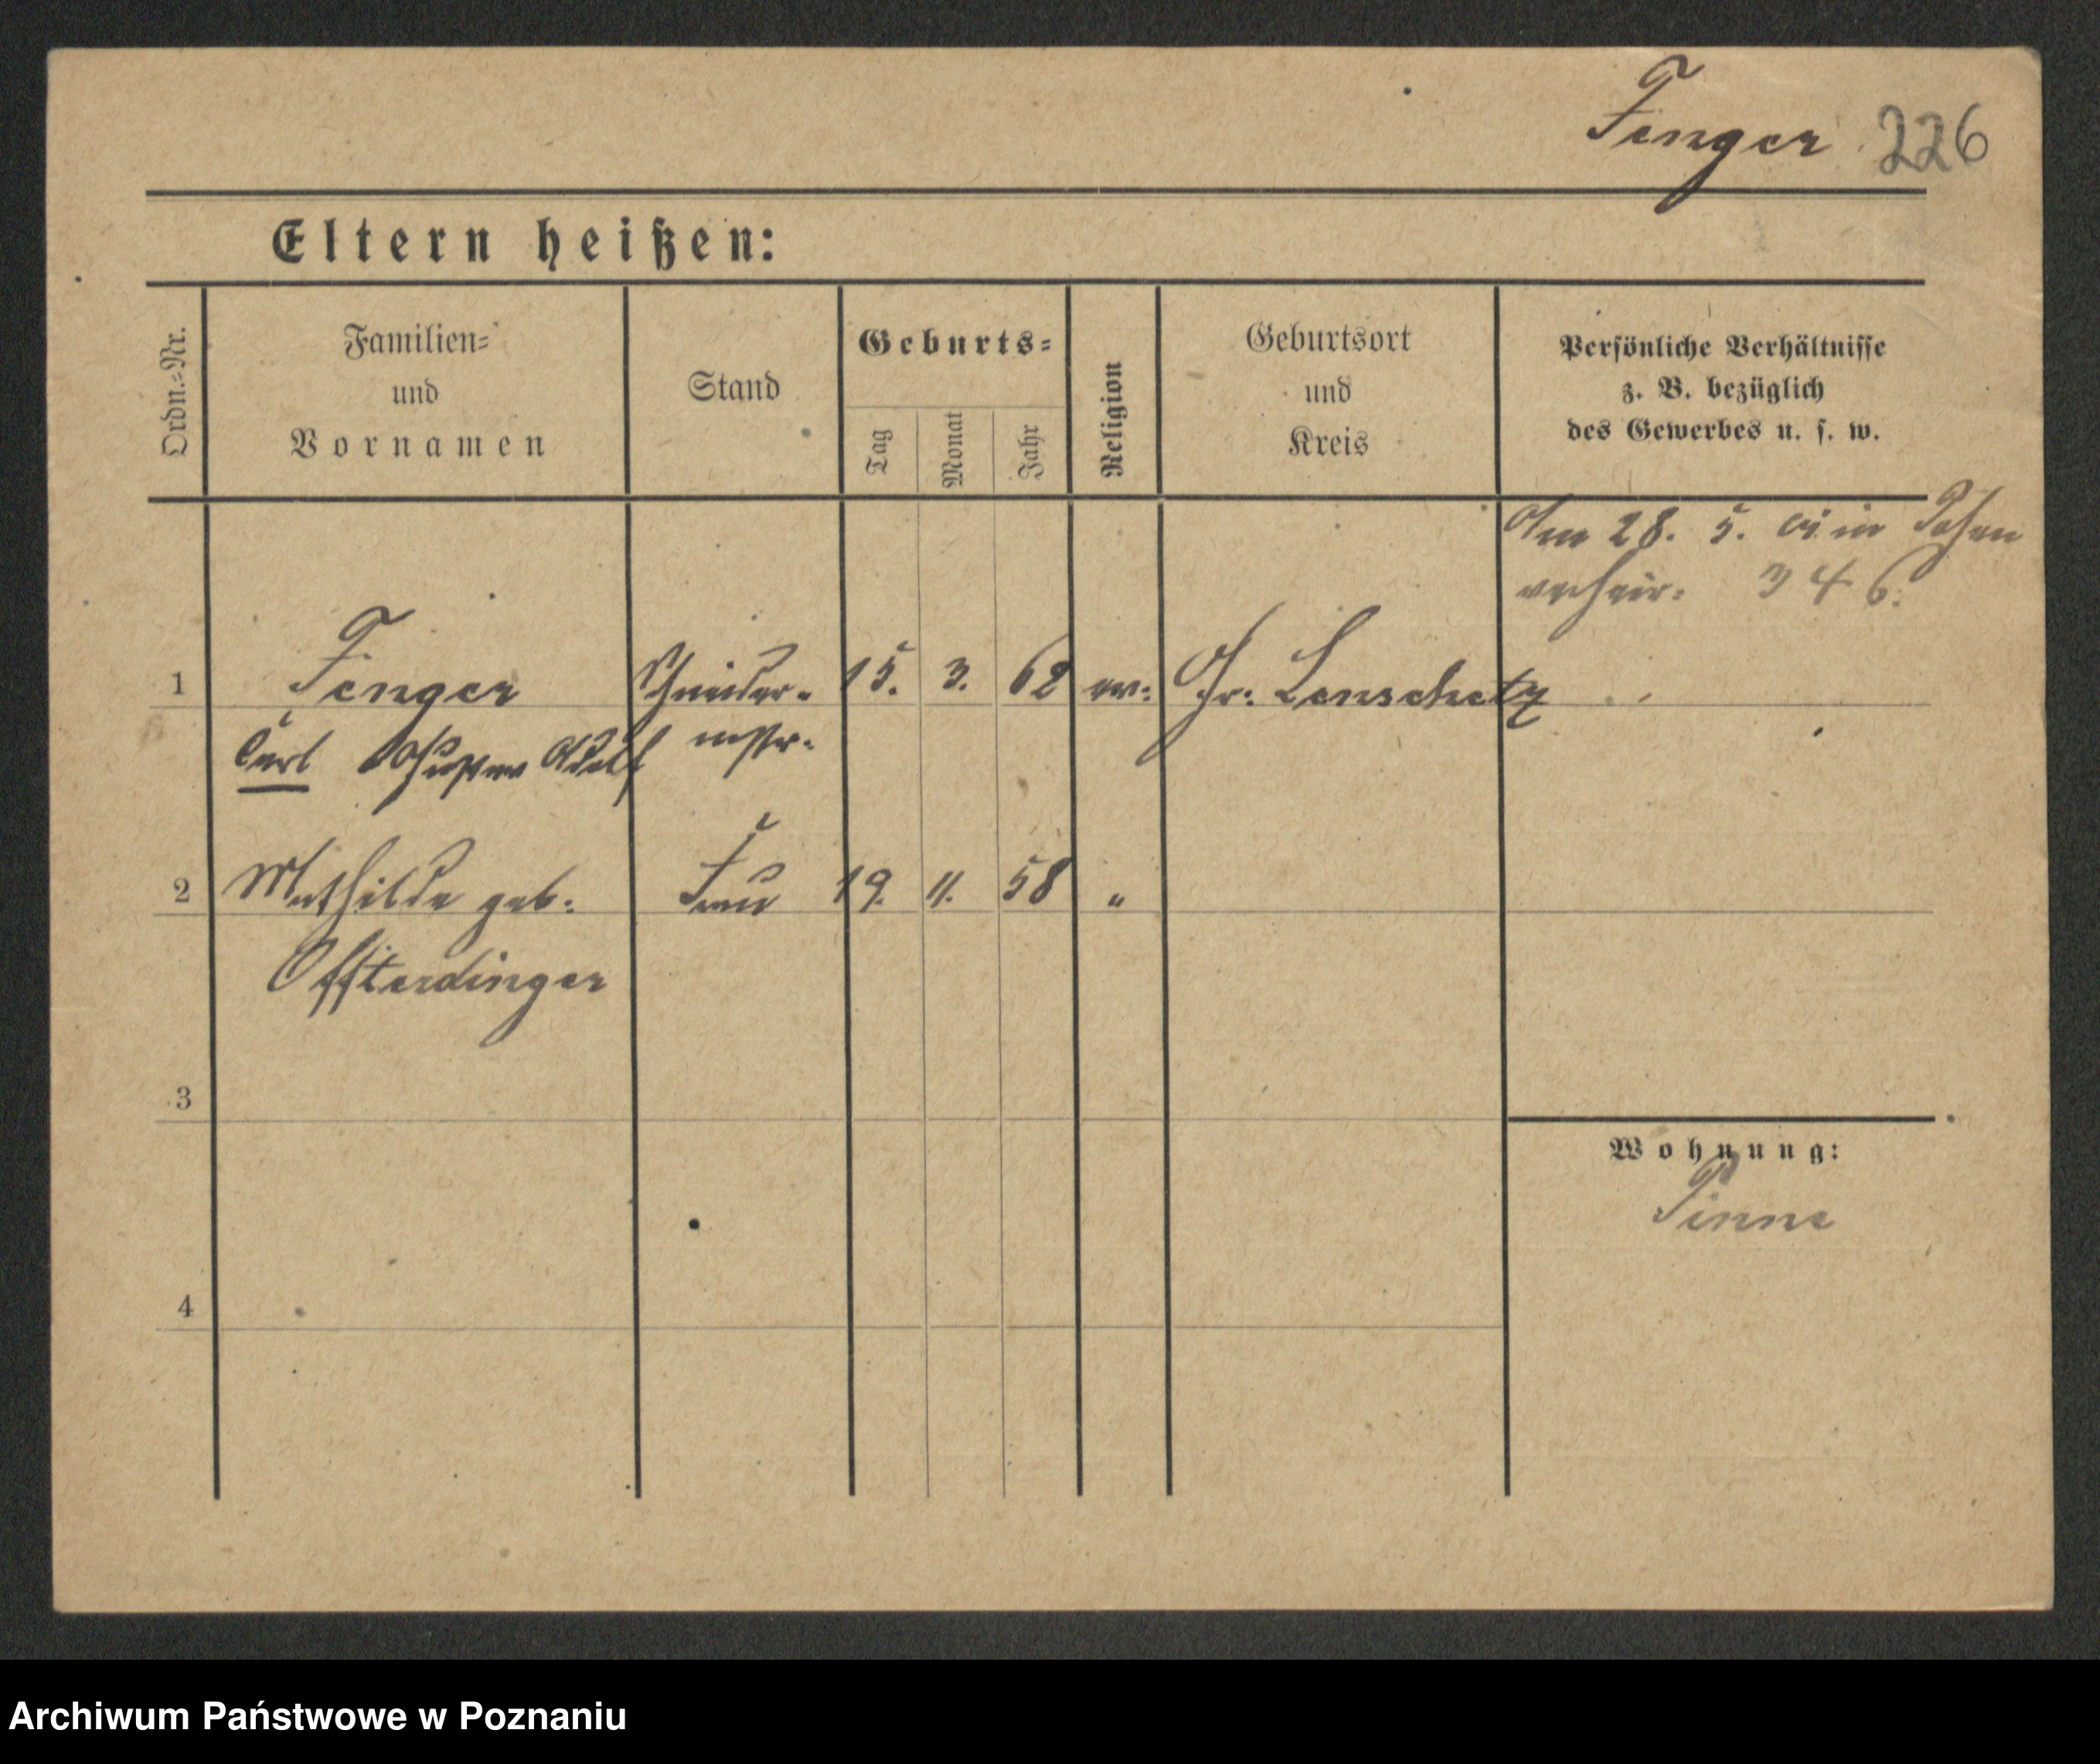 Fenger 226
Eltern heißen:
Ordn.-Nr.
Familien-
und
Vornamen
Stand
Geburts-
Tag
Monat
Jahr
Religion
Geburtsort
und
Kreis
Persönliche Verhältnisse
z. B. bezüglich
des Gewerbes u. s. w.
Am 28. 5. in Posen
verheir: 346.
1 Fenger Schneider- 15. 3. 62 ev: Gr: Lenschetz
Carl Gustav Adolf mstr.
2 Mathilde geb: Frau 19. 11. 58 "
Offterdinger
3
Wohnung:
Pinne
4
Archiwum Państwowe w Poznaniu